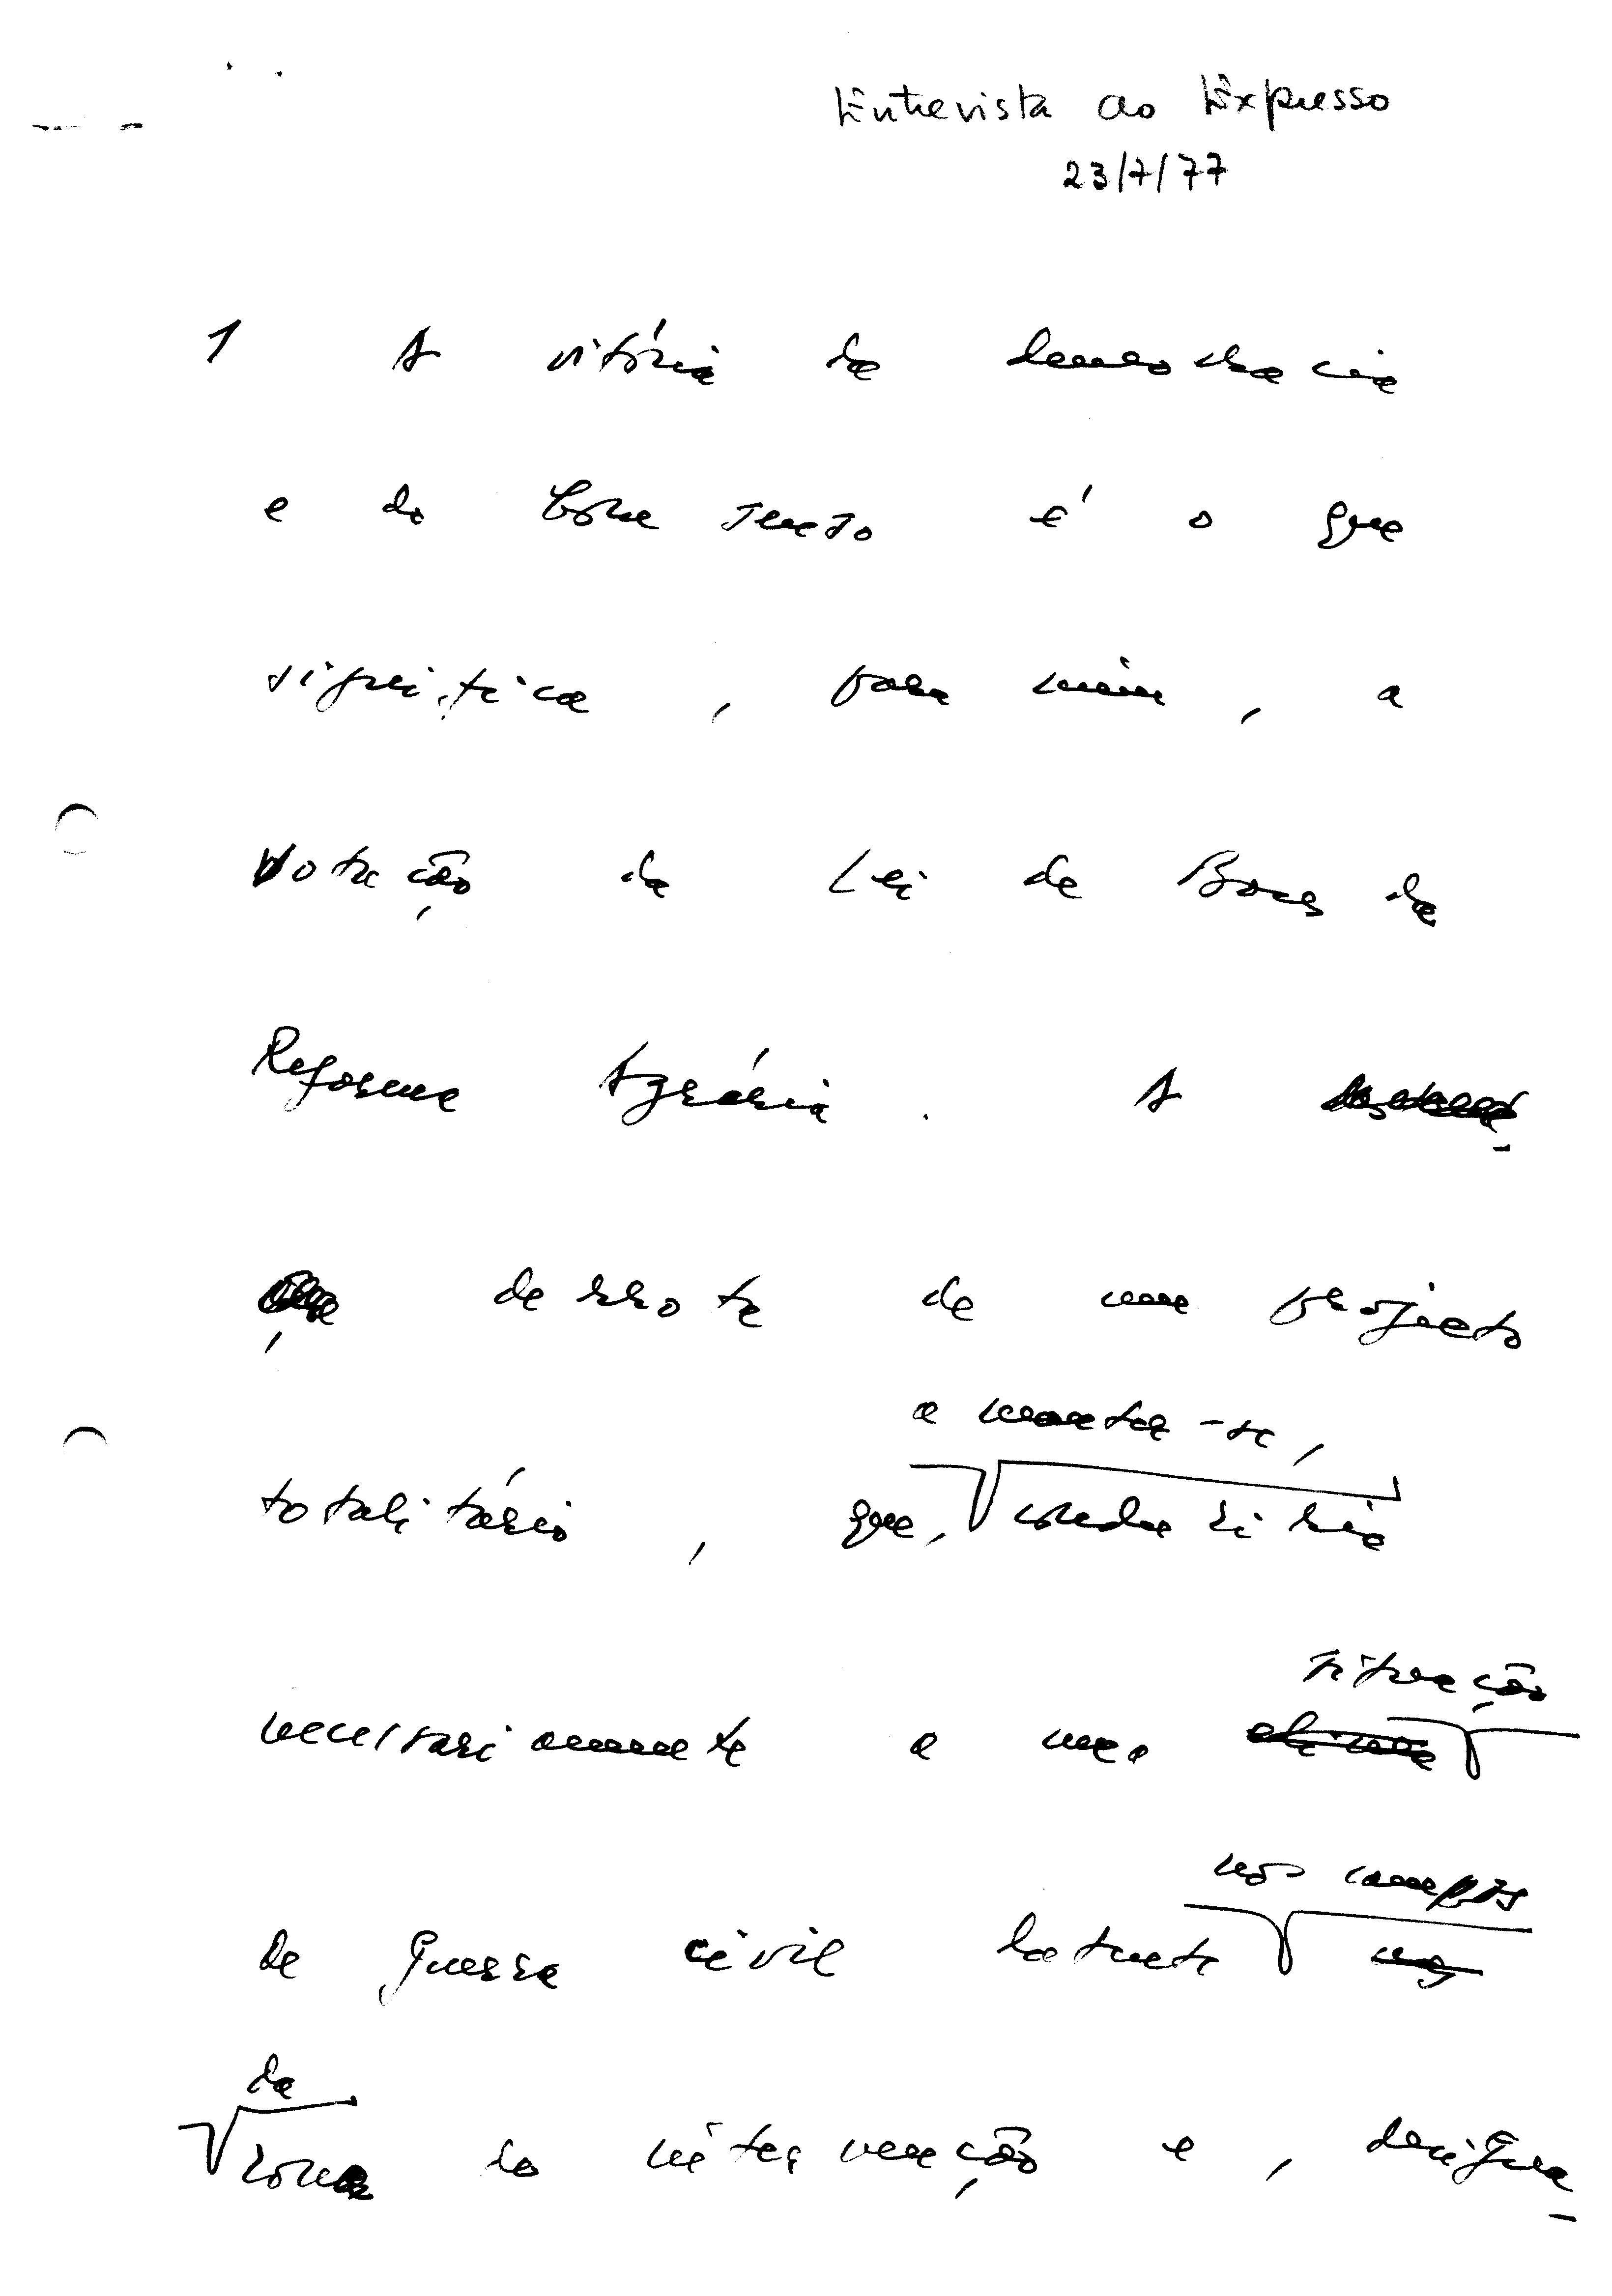 Entrevista ao Expresso
23/7/77
1 A vitória da democracia
e do bom senso é o que
significa, para mim, a
votação da Lei de Bases da
Reforma Agrária. A
derrota de um projecto
a manter-se,
totalitário, que, conduziria
situação
necessariamente a uma clima
nos campos
de guerra civil latente na
da
zona de intervenção e, designa-